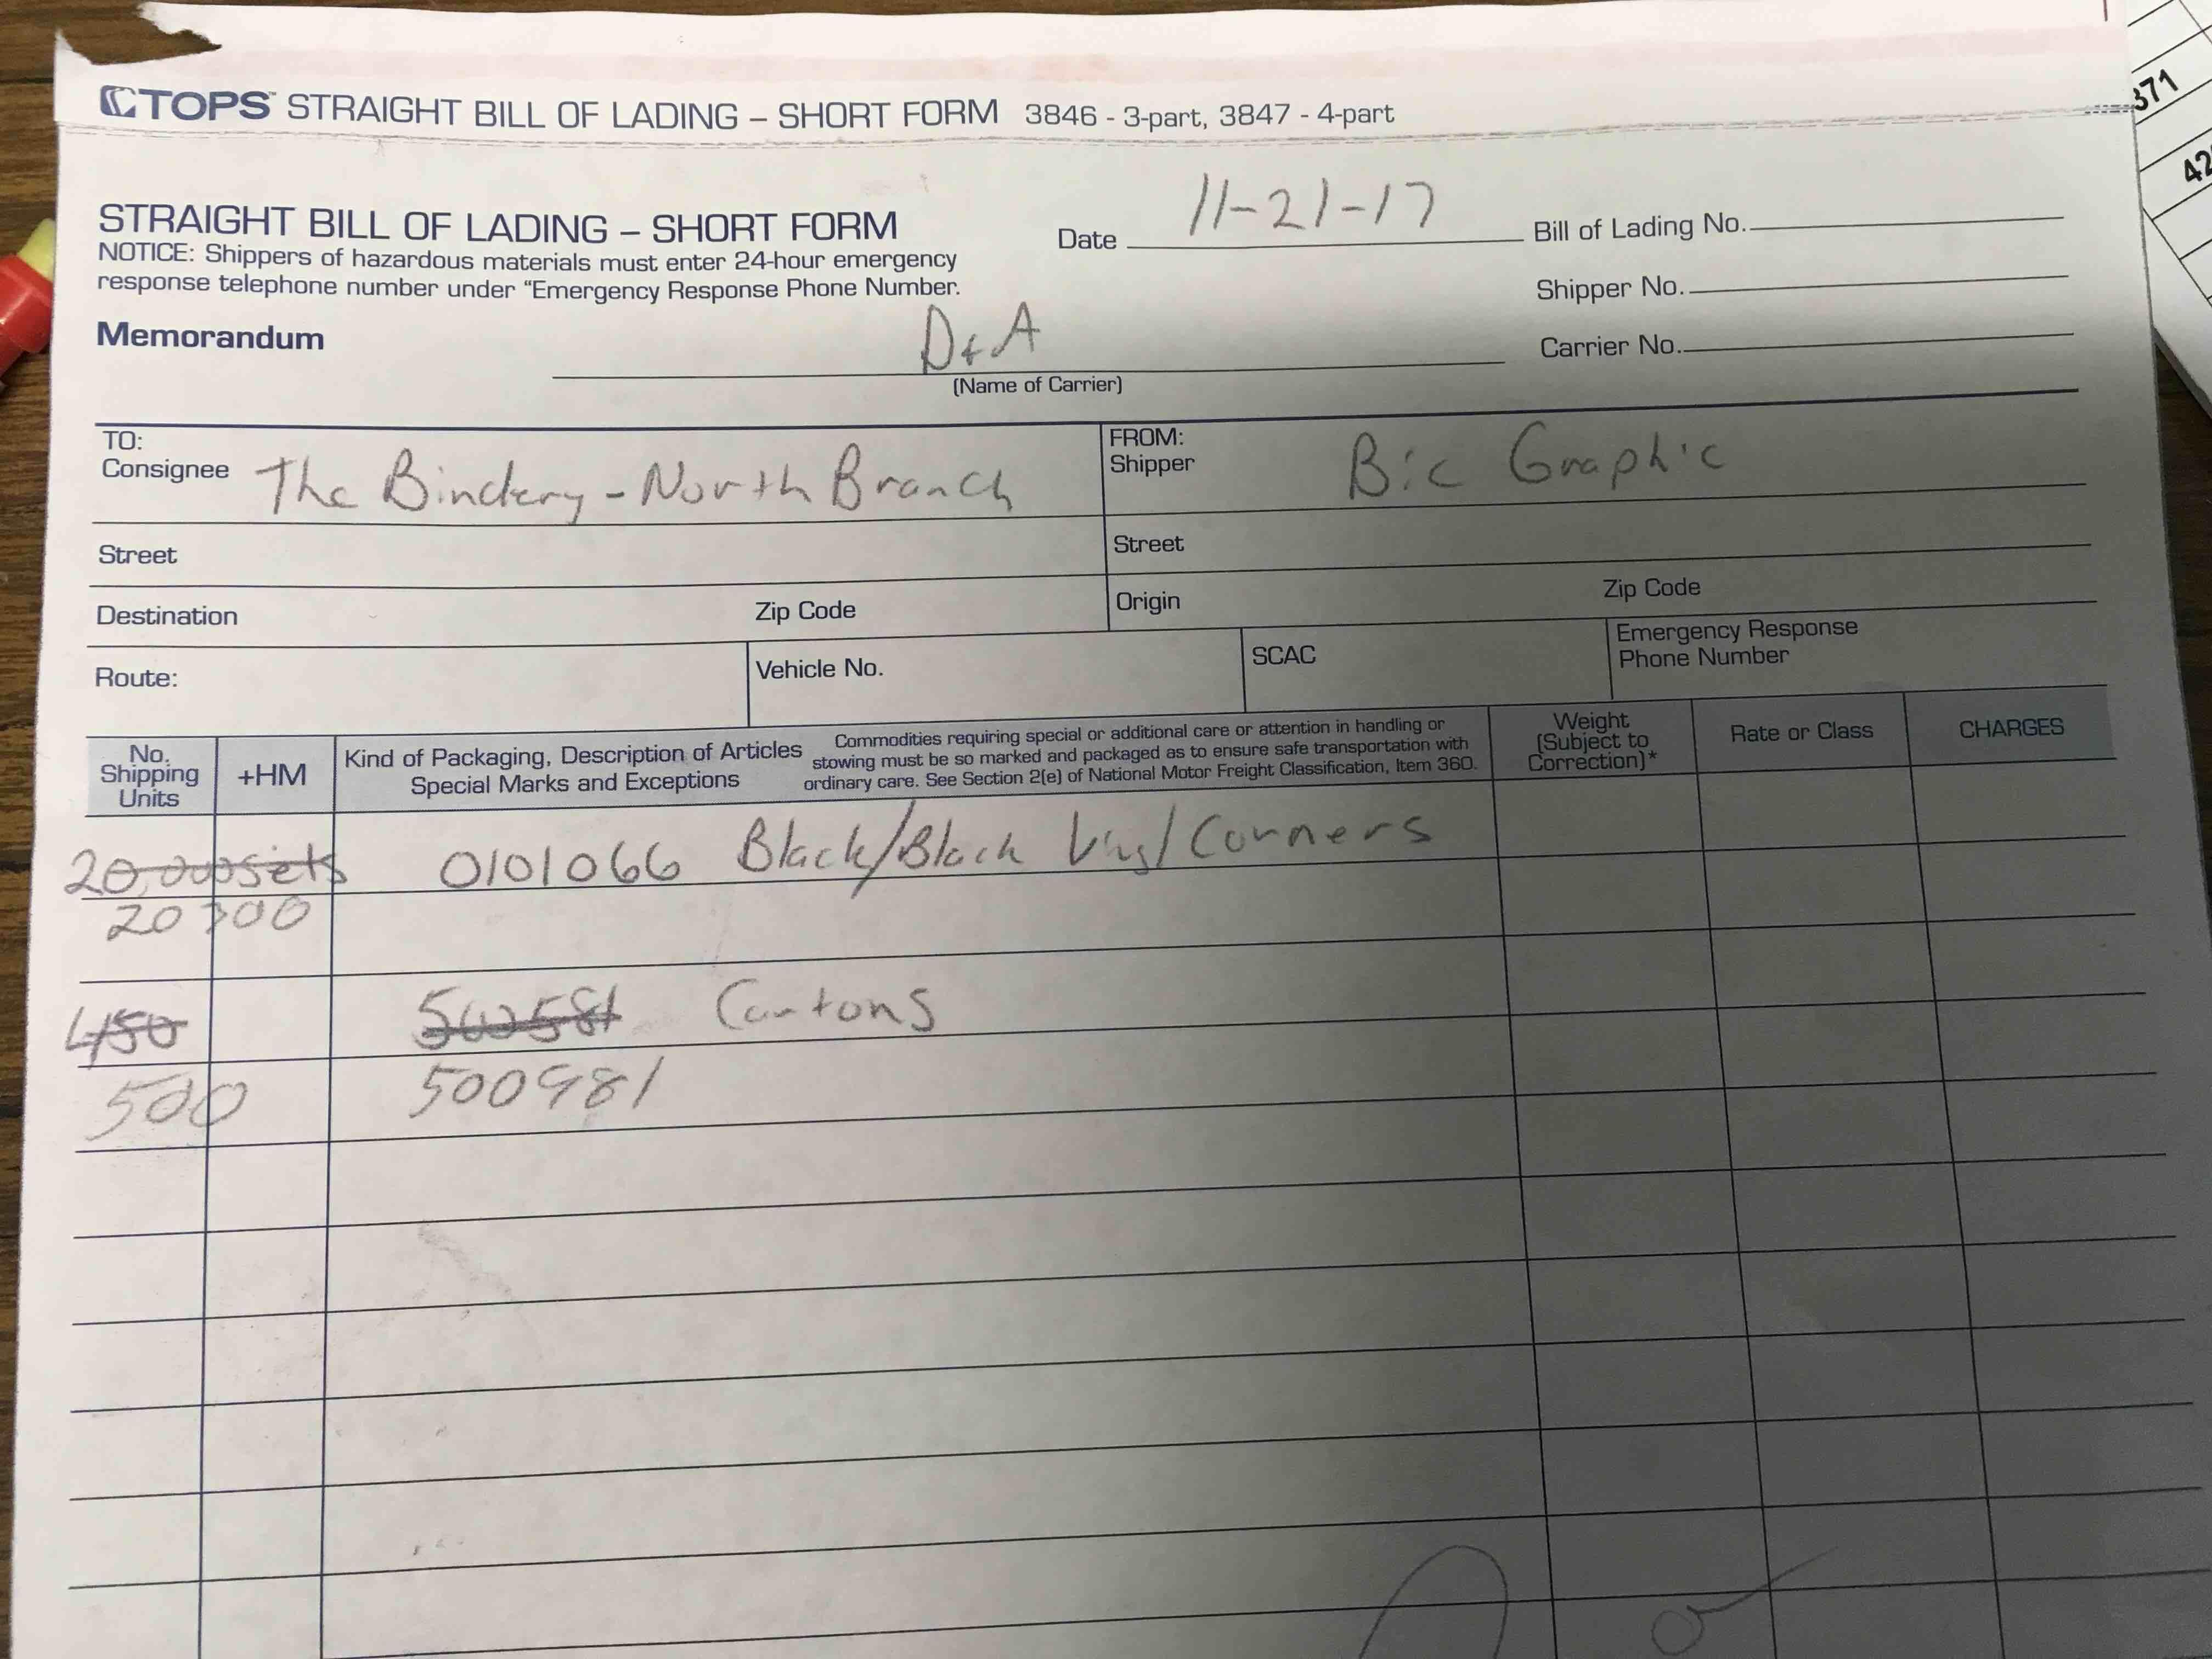 TOPS™ STRAIGHT BILL OF LADING – SHORT FORM 3846 - 3-part, 3847 - 4-part
371
42
STRAIGHT BILL OF LADING – SHORT FORM
NOTICE: Shippers of hazardous materials must enter 24-hour emergency
response telephone number under “Emergency Response Phone Number.
Date 11-21-17
Bill of Lading No.
Shipper No.
Carrier No.
Memorandum
D+A
(Name of Carrier)
TO:
Consignee The Bindery - North Branch
FROM:
Shipper Bic Graphic
Street
Street
Destination Zip Code
Origin Zip Code
Route:
Vehicle No.
SCAC
Emergency Response
Phone Number
No.
Shipping
Units
+HM
Kind of Packaging, Description of Articles
Special Marks and Exceptions
Commodities requiring special or additional care or attention in handling or
stowing must be so marked and packaged as to ensure safe transportation with
ordinary care. See Section 2(e) of National Motor Freight Classification, Item 360.
Weight
(Subject to
Correction)*
Rate or Class
CHARGES
20,000 sets 0101066 Black/Black Vinyl Corners
20300
450 Cartons
500 500981